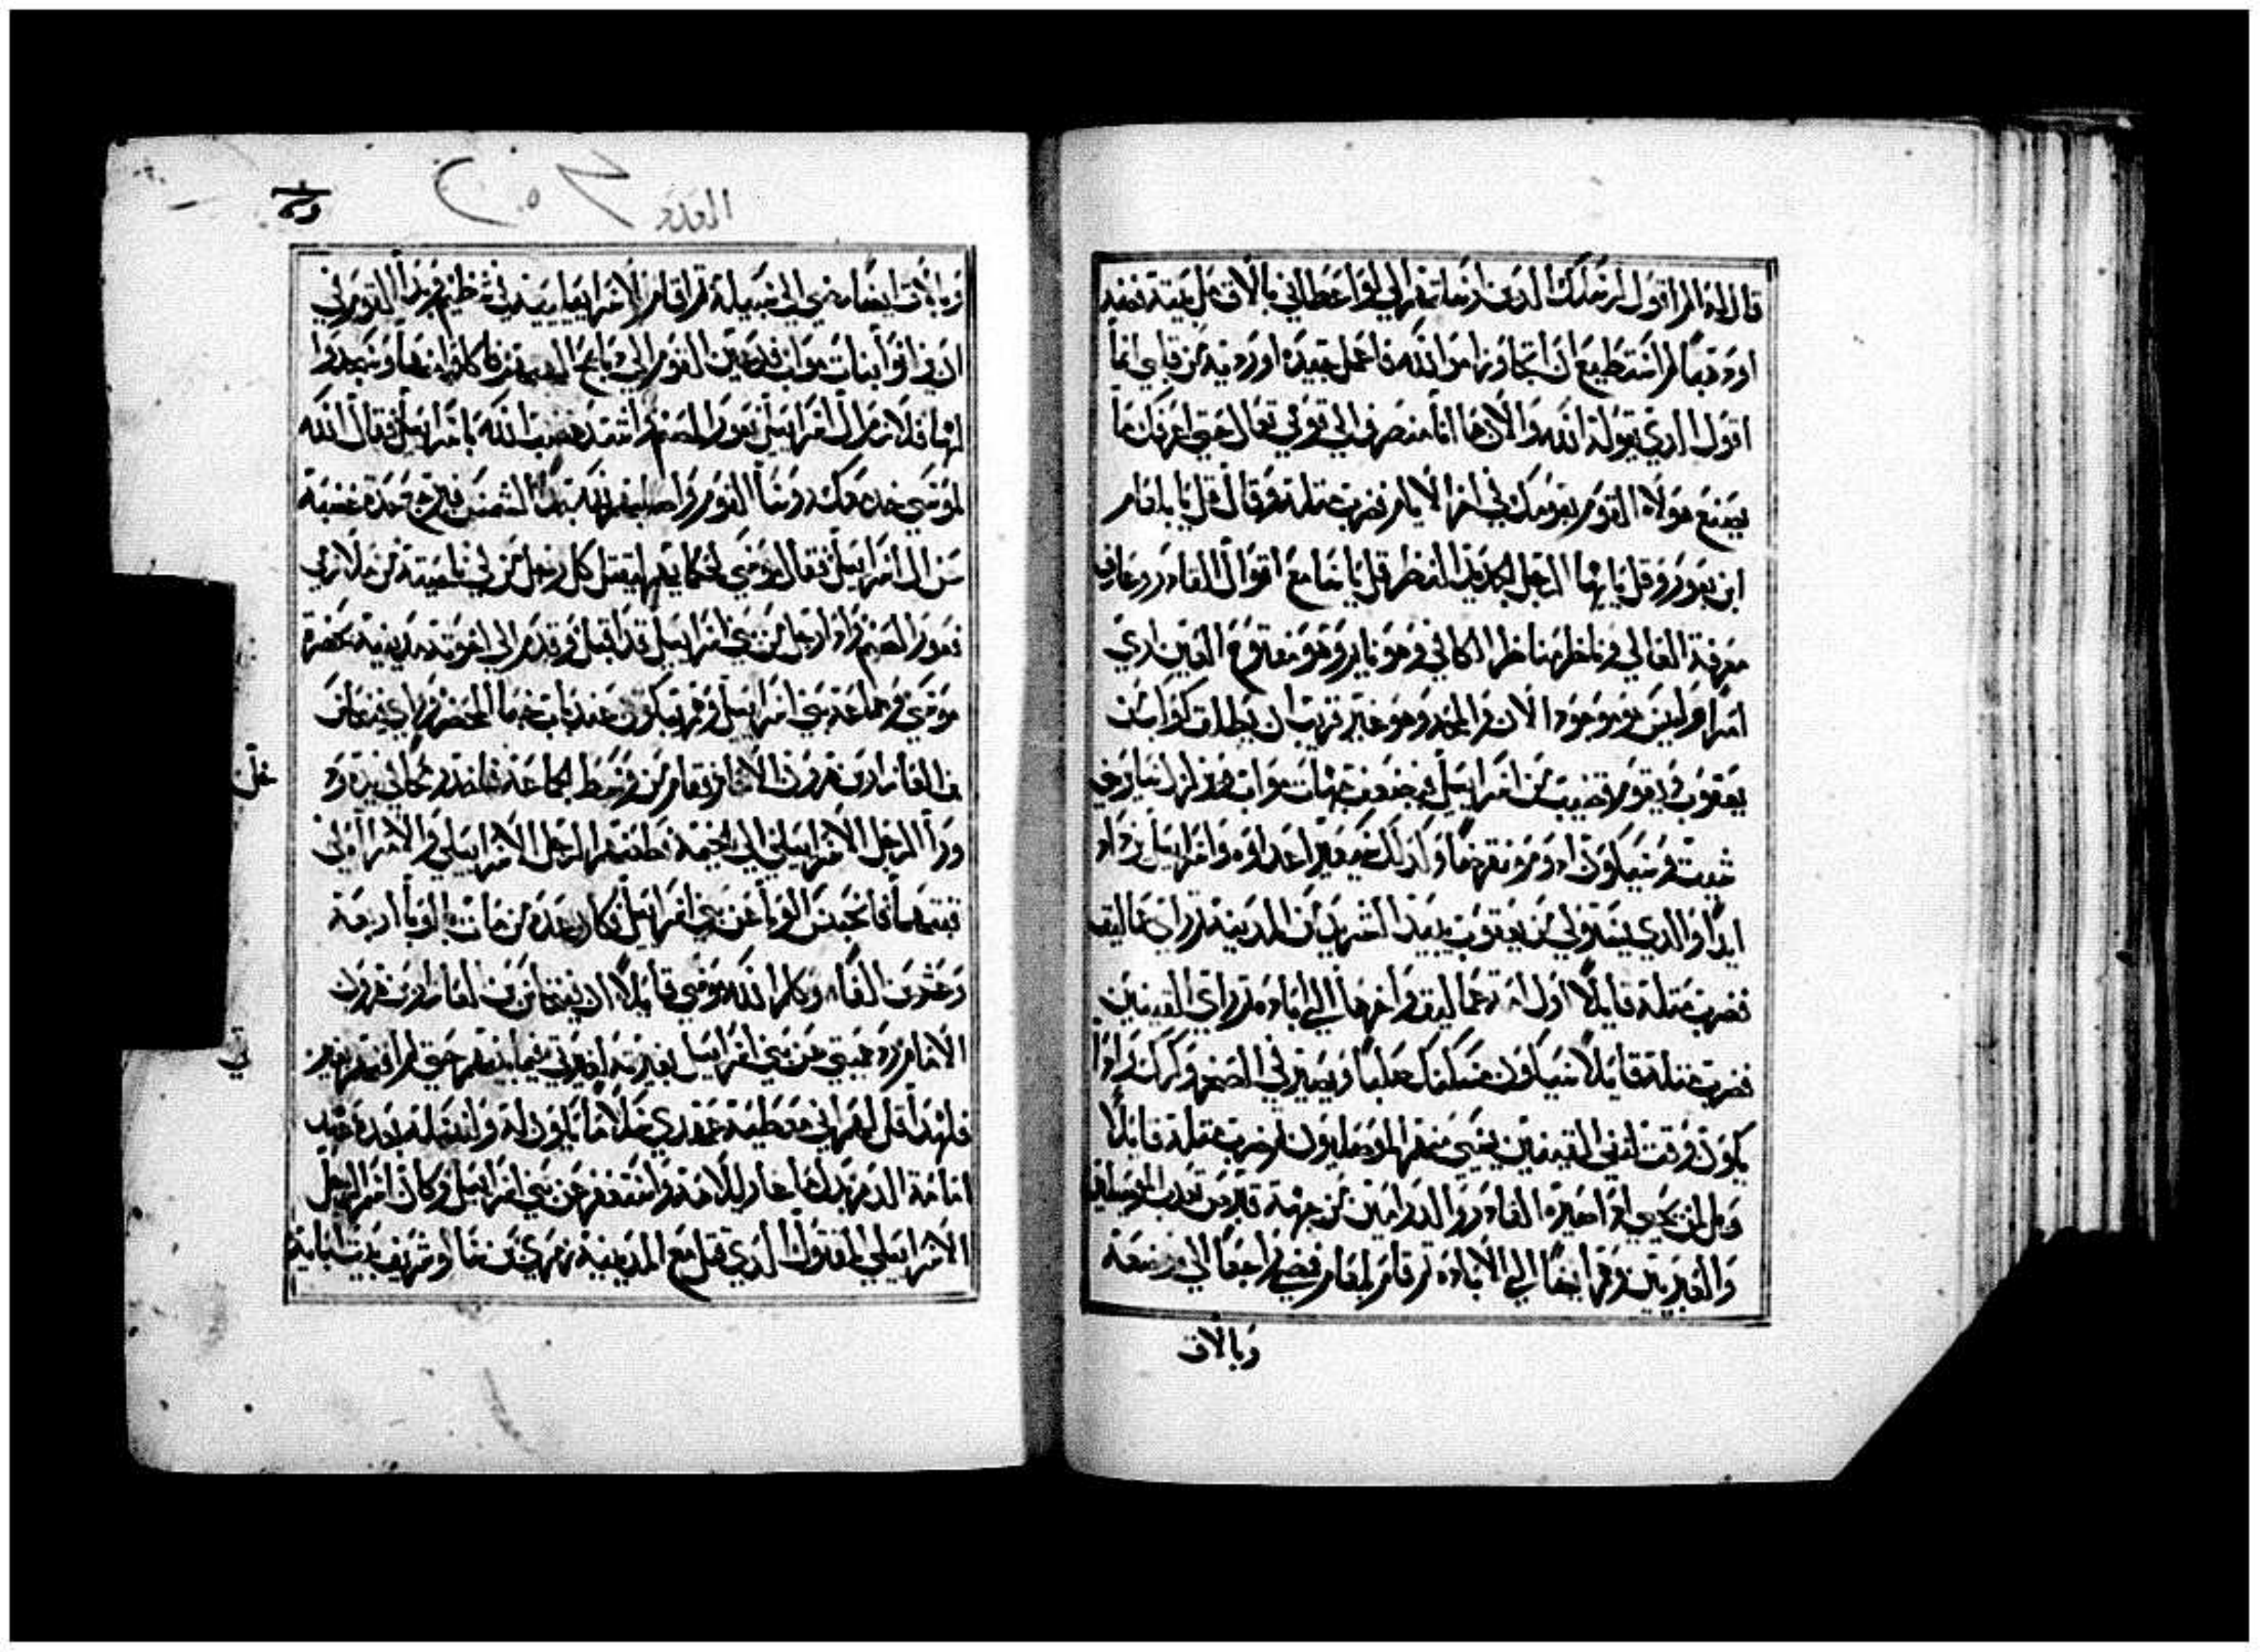 قال له الم اقول لرسلك الدين ارسلتهم الي لو اعطاني بالاق مل بيته فضه
او دهبا لم استطيع ان اتجاوز امر الله فاعمل جيده او رديه من قلبي انما
اقول الدي يقوله الله والان ها انا منصرف الي قومي تعال حتي اعرفك ما
يصنع هولاء القوم بقومك في اخر الايام فضرب مثله وقال قل يا بلعام
ابن بعور وقل يا ايها الرجل الحديد النظر قل يا سامع اقوال القادر وعارف
معرفة العالي وناظر مناظر الكافي وهو نايم وهو مفتوح العين اري
امرا وليس هو موجودا الان والمجد وهو غير قريب ان يطلق كوكبا من
يعقوب ويقوم قضيب من اسراييل فيضعف جهات مواب ويزلزل ساير بني
شيت وسيكون ادوم منقرضا وكدلك يصير اعداوه واسراييل يزداد
ايدا والدي يستولي من يعقوب يبيد الشريد من المدينة ثم راي عماليق
فضرب مثله قايلا اول امة عماليق واخرها الي اباده ثم راي القينيين
فضرب مثله قايلا سيكون مسكنك صلبا ويصير في الصخر وكرك واذا
يكون وقت لنفي القينيين يسبي منهم الموصليون ثم ضرب مثله قايلا
وبل لمن يحيي اذا صيره القادر والدوامين من جهة قبرس تعدب الموصليين
والعبريين وهم ايضا الي الاباده ثم قام بلعام فمضي راجعا الي موضعه
وبالاق
العدد
وبالاق ايضا مضي الي سبيله ثم اقام الاسراييليين في شطيم وبدا القوم في
ان يزانوا بنات مواب فدعين القوم الي دبايح الهتهن فاكلوا منها وسجدوا
لها فلازم ال اسراييل بعور الصنم اشتد غضب الله باسراييل فقال الله
لموسي خد معك روسا القوم واصلبهم لله تجاه الشمس فيرجع شدة غضبه
عن ال اسراييل فقال موسي لحكامهم ليقتل كل رجل من في ناحيته من ملازمي
بعور الصنم وادا رجل من بني اسراييل قد اقبل وقدم الي اخوته مدينية بحضرة
موسي وجماعة بني اسراييل وهم يبكون عند باب خبا المحضر وراي فينحاس
بن العازار بن هرون الامام فقام من وسط الجماعة فاخد رمحا في يده و
ورا الرجل الاسراييلي الي الخيمة فطعنهما الرجل الاسراييلي والامراة في
قبتهما فانحبس الوبا عن بني اسراييل فكان عدة من مات بالوبا اربعة
وعشرين الفا وكلم الله موسي قايلا ان فينحاس بن العازار بن هرون
الامام رد حميتي عن بني اسراييل بغيرته لغيرتي فيما بينهم حتي لم افنيهم بغير
فلهدا قل لهم اني معطيه عهدي سلاما يكون له ولنسله بعده عهد
امامة الدهر بدل ما غار لالاهه واستغفر عن بني اسراييل وكان اسم الرجل
الاسراييلي المقتول الدي قتل مع المدينية زمري بن سالو شريف بيت اباية